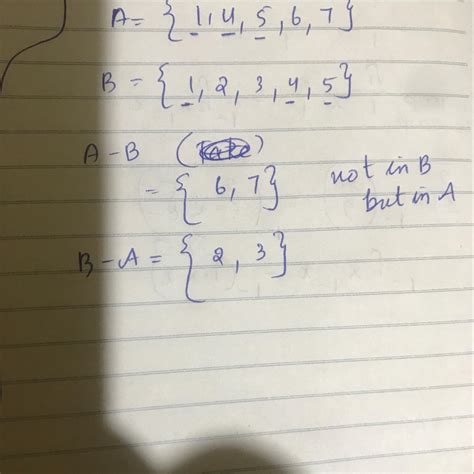 A = { 1, 4, 5, 6, 7}
B = { 1, 2, 3, 4, 5}
A - B ( )
= { 6, 7} not in B
but in A
B - A = { 2, 3}